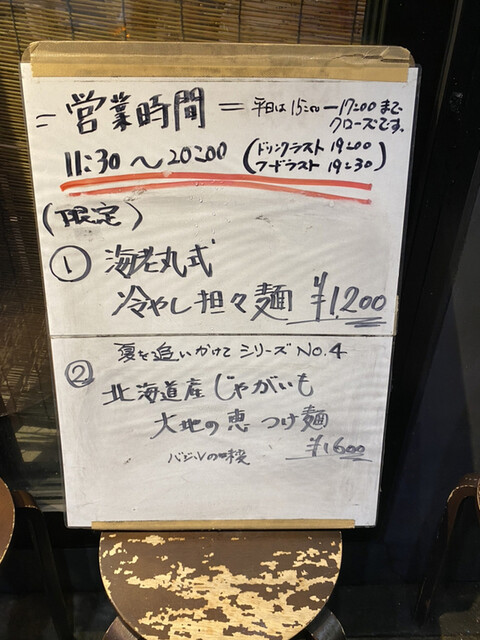 = 営業時間 = 平日は 15:00ー17:00まで
クローズです。
11:30 〜 20:00 (ドリンクラスト 19:00
フードラスト 19:30)
(限定)
① 海老丸式
冷やし担々麺 ¥1,200
夏を追いかけて シリーズ NO.4
② 北海道産 じゃがいも
大地の恵 つけ麺
バジルの
¥1600